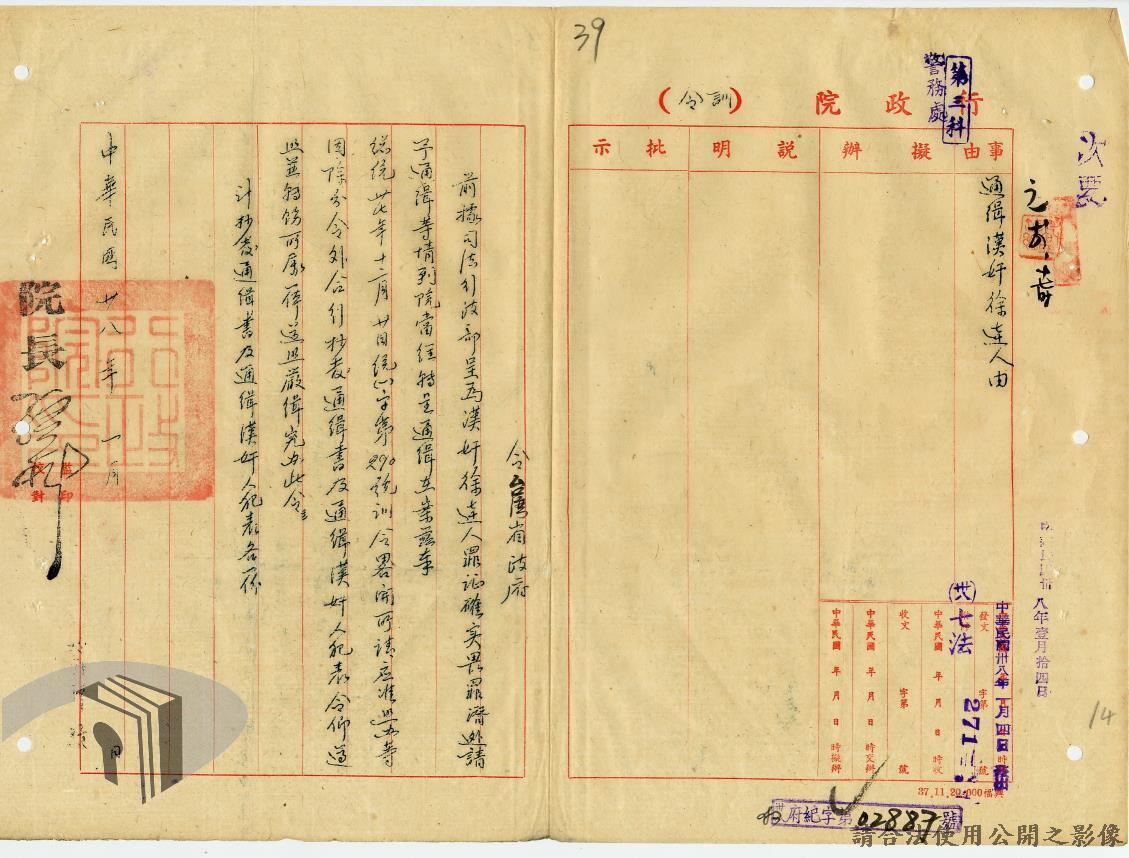 39
第三科
警務處
行政院
(訓令)
事由
擬辦
說明
批示
次要
通緝漢奸徐逹人由
八年壹月拾四日
14
中華民國卅八年一月四日
發文
字第
號
七法
271
收文
字第
號
中華民國 年 月 日 時收
中華民國 年 月 日 時交辦
中華民國 年 月 日 時擬辦
37.11.20.000
府紀字第02887號
令台灣省政府
前據司法行政部呈為漢奸徐逹人罪証確實畏罪潛逃請
予通緝等情到院當經轉呈通緝在案茲奉
總統卅七年十二月廿日統 字第290號訓令畧開所請應准照辦等
因除分令外合行抄發通緝書及通緝漢奸人犯表令仰遵
照並轉飭所屬一體遵照嚴緝究辦此令
計抄發通緝書及通緝漢奸人犯表各一份
中華民國卅八年一月 日
院長孫科
監印
校對
請合法使用公開之影像